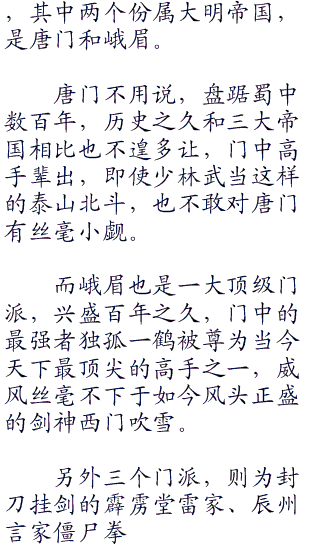 ，其中两个份属大明帝国，
是唐门和峨眉。
唐门不用说，盘踞蜀中
数百年，历史之久和三大帝
国相比也不遑多让，门中高
手辈出，即使少林武当这样
的泰山北斗，也不敢对唐门
有丝毫小觑。
而峨眉也是一大顶级门
派，兴盛百年之久，门中的
最强者独孤一鹤被尊为当今
天下最顶尖的高手之一，威
风丝毫不下于如今风头正盛
的剑神西门吹雪。
另外三个门派，则为封
刀挂剑的霹雳堂雷家、辰州
言家僵尸拳